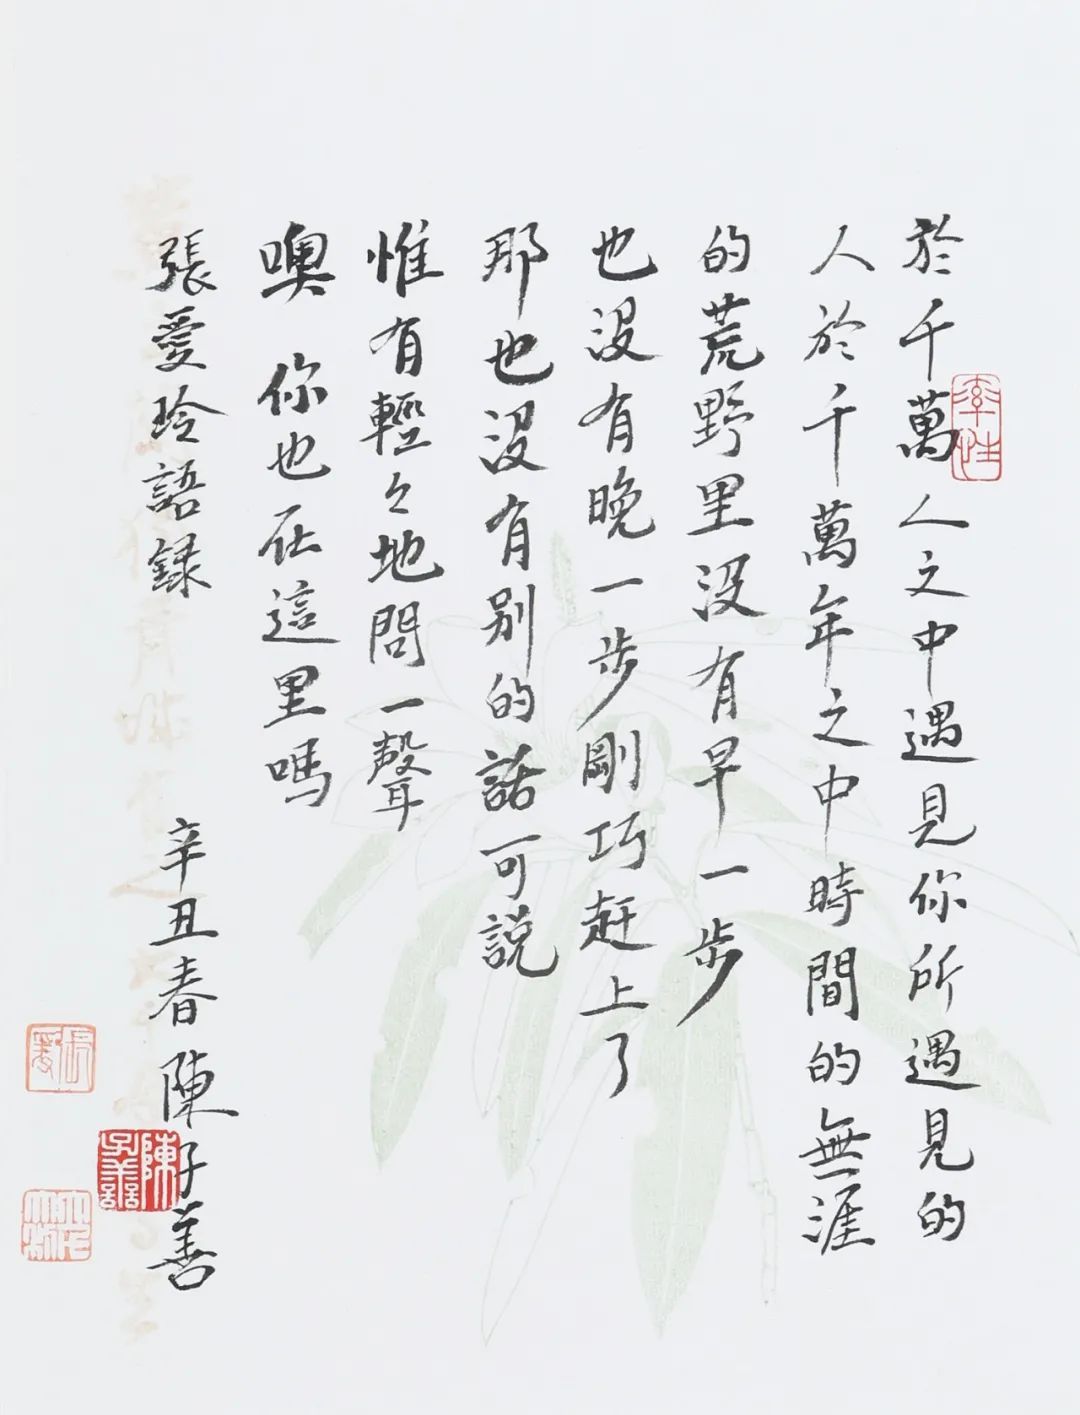 於千萬人之中遇見你所遇見的
人於千萬年之中時間的無涯
的荒野里没有早一步
也没有晚一步剛巧赶上了
那也没有别的話可説
惟有輕々地問一聲
噢 你也在這里嗎
張愛玲語録
辛丑春 陳子善
率性
陳子善